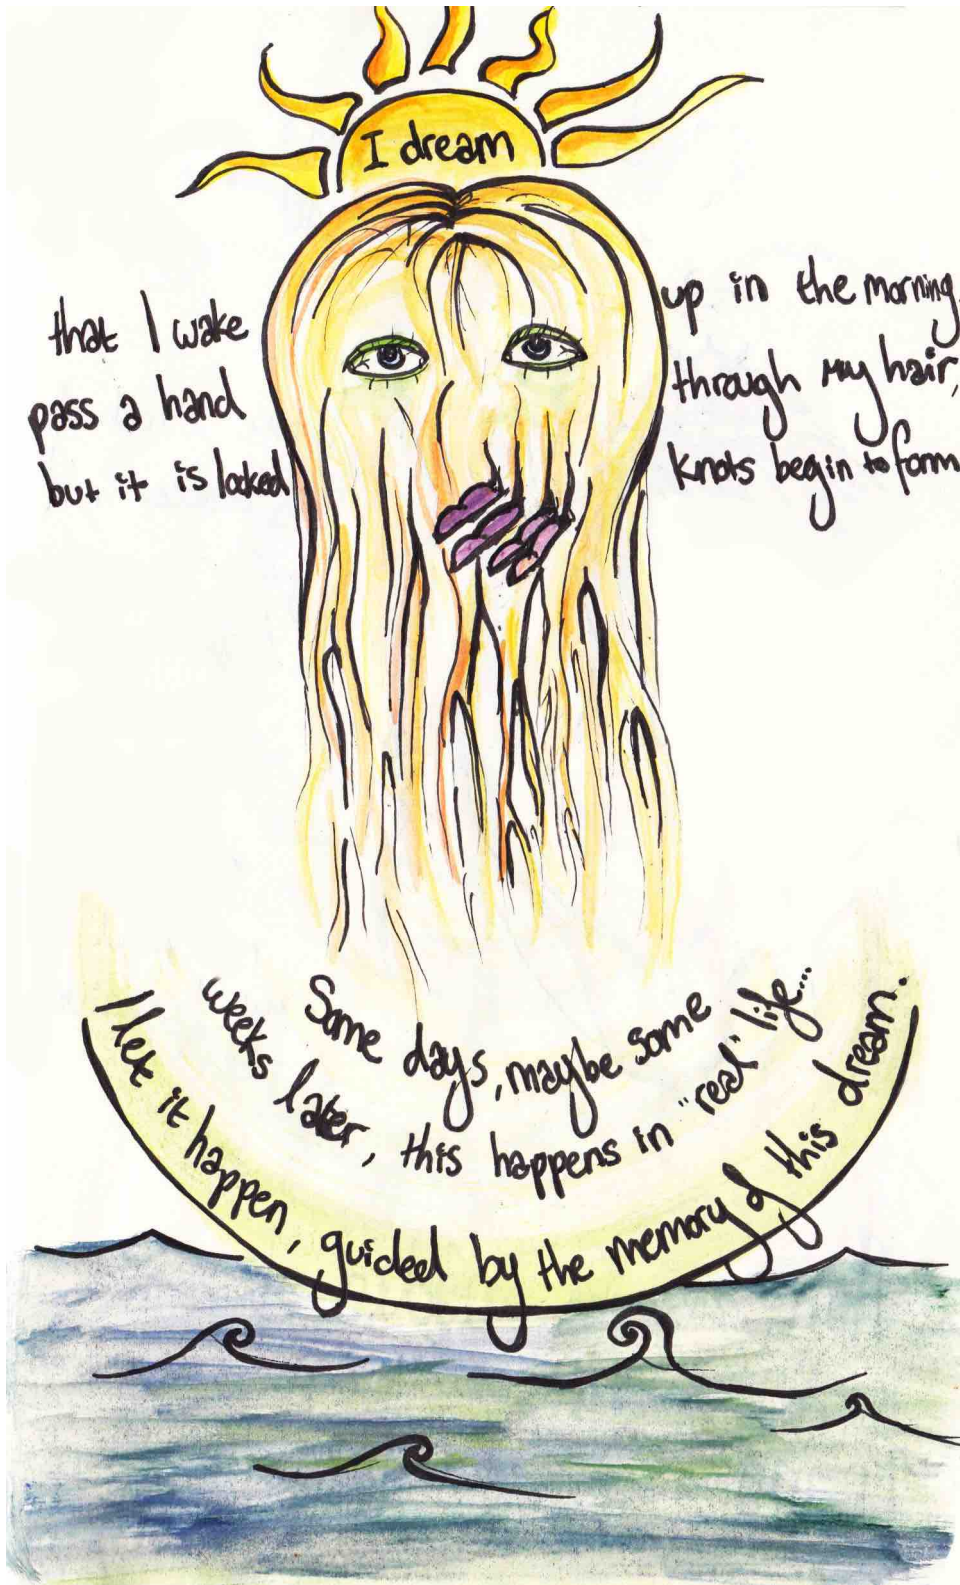 I dream
that I wake up in the morning,
pass a hand through my hair,
but it is locked knots begin to form
Some days, maybe some
weeks later, this happens in "real" life...
I let it happen, guided by the memory of this dream.